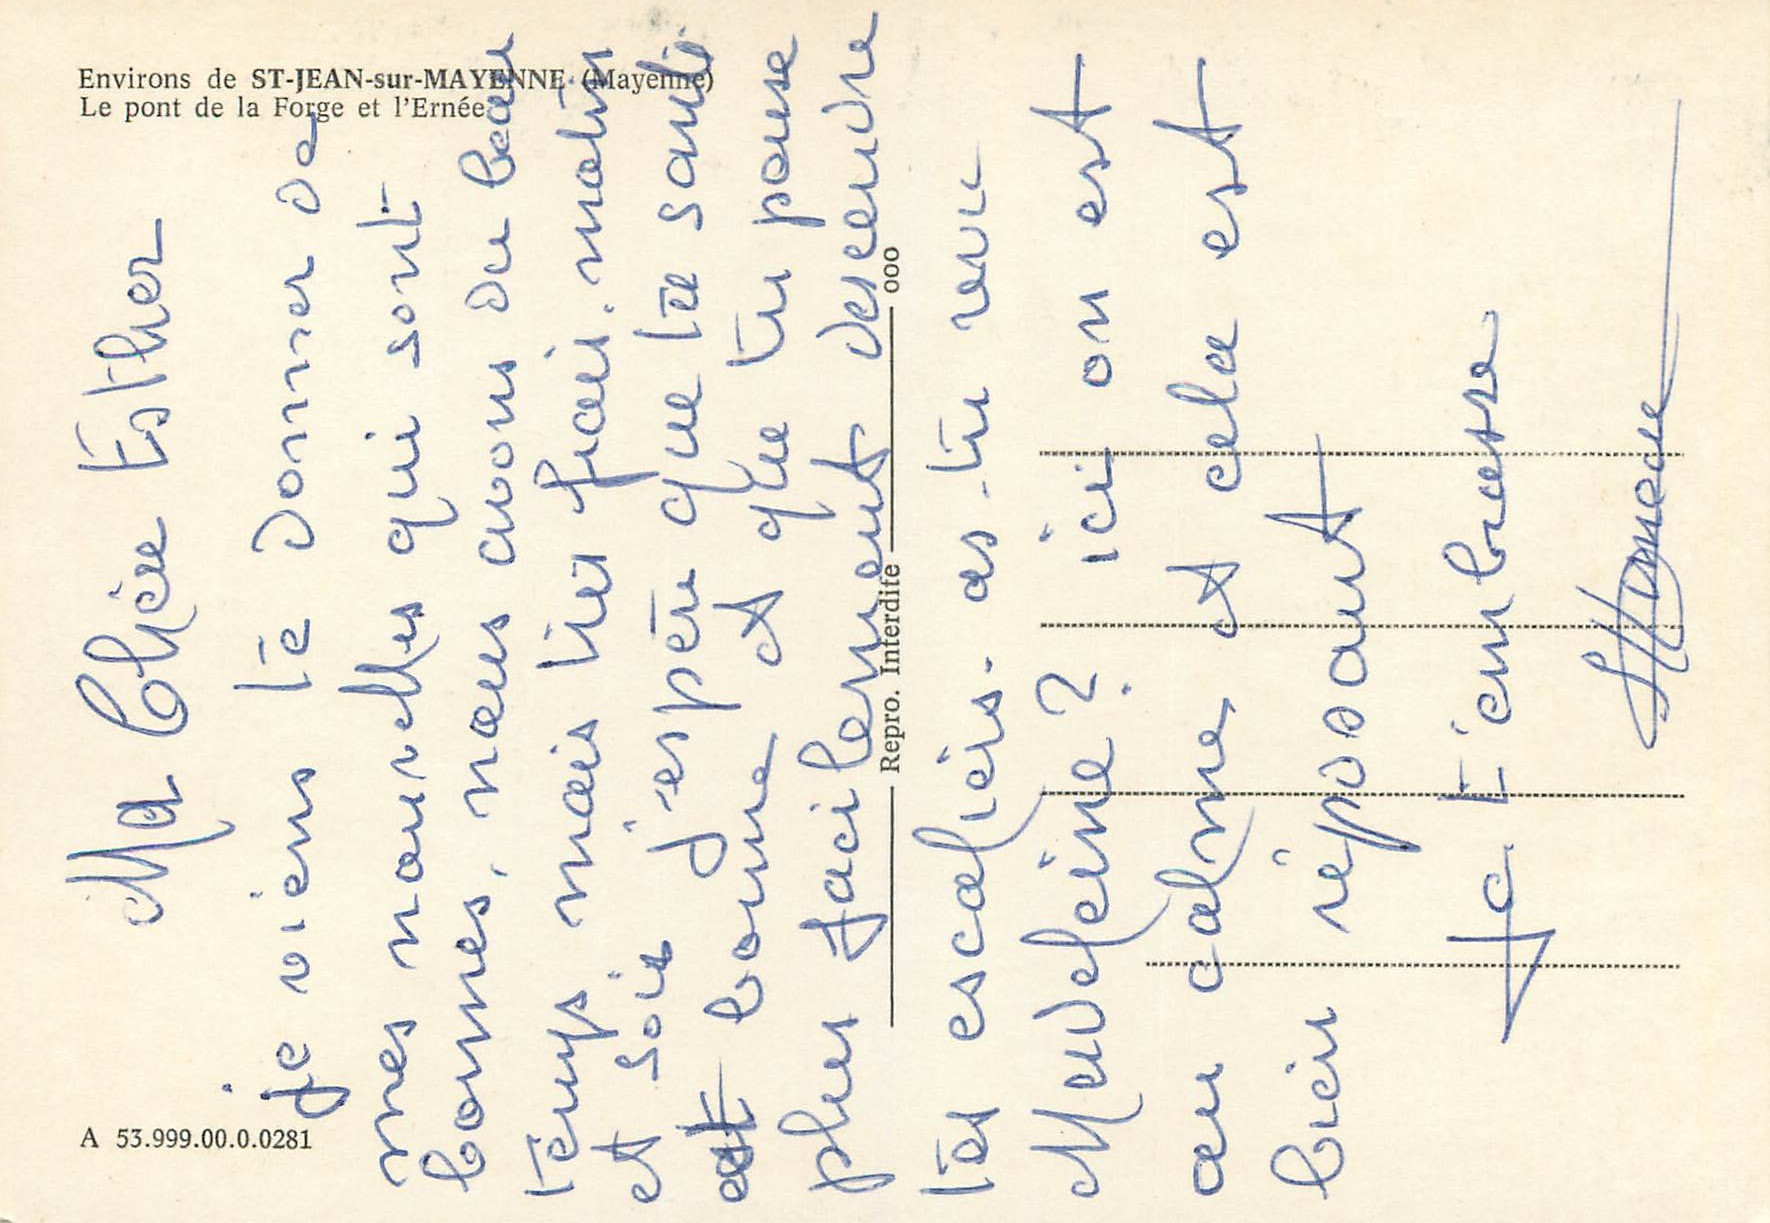 Environs de ST-JEAN-sur-MAYENNE (Mayenne)
Le pont de la Forge et l'Ernée
A 53.999.00.0.0281
Repro. Interdite
ooo
Ma Chère Esther
je viens te donner de
mes nouvelles qui sont
bonnes, nous avons du beau
temps mais très frais. matin
et soir j'espère que ta santé
est bonne et que tu pause
plus facilement descendre
tes escaliers. as-tu revu
Madeleine? ici on est
au calme, et cela est
bien réposant
Je t'embrasse